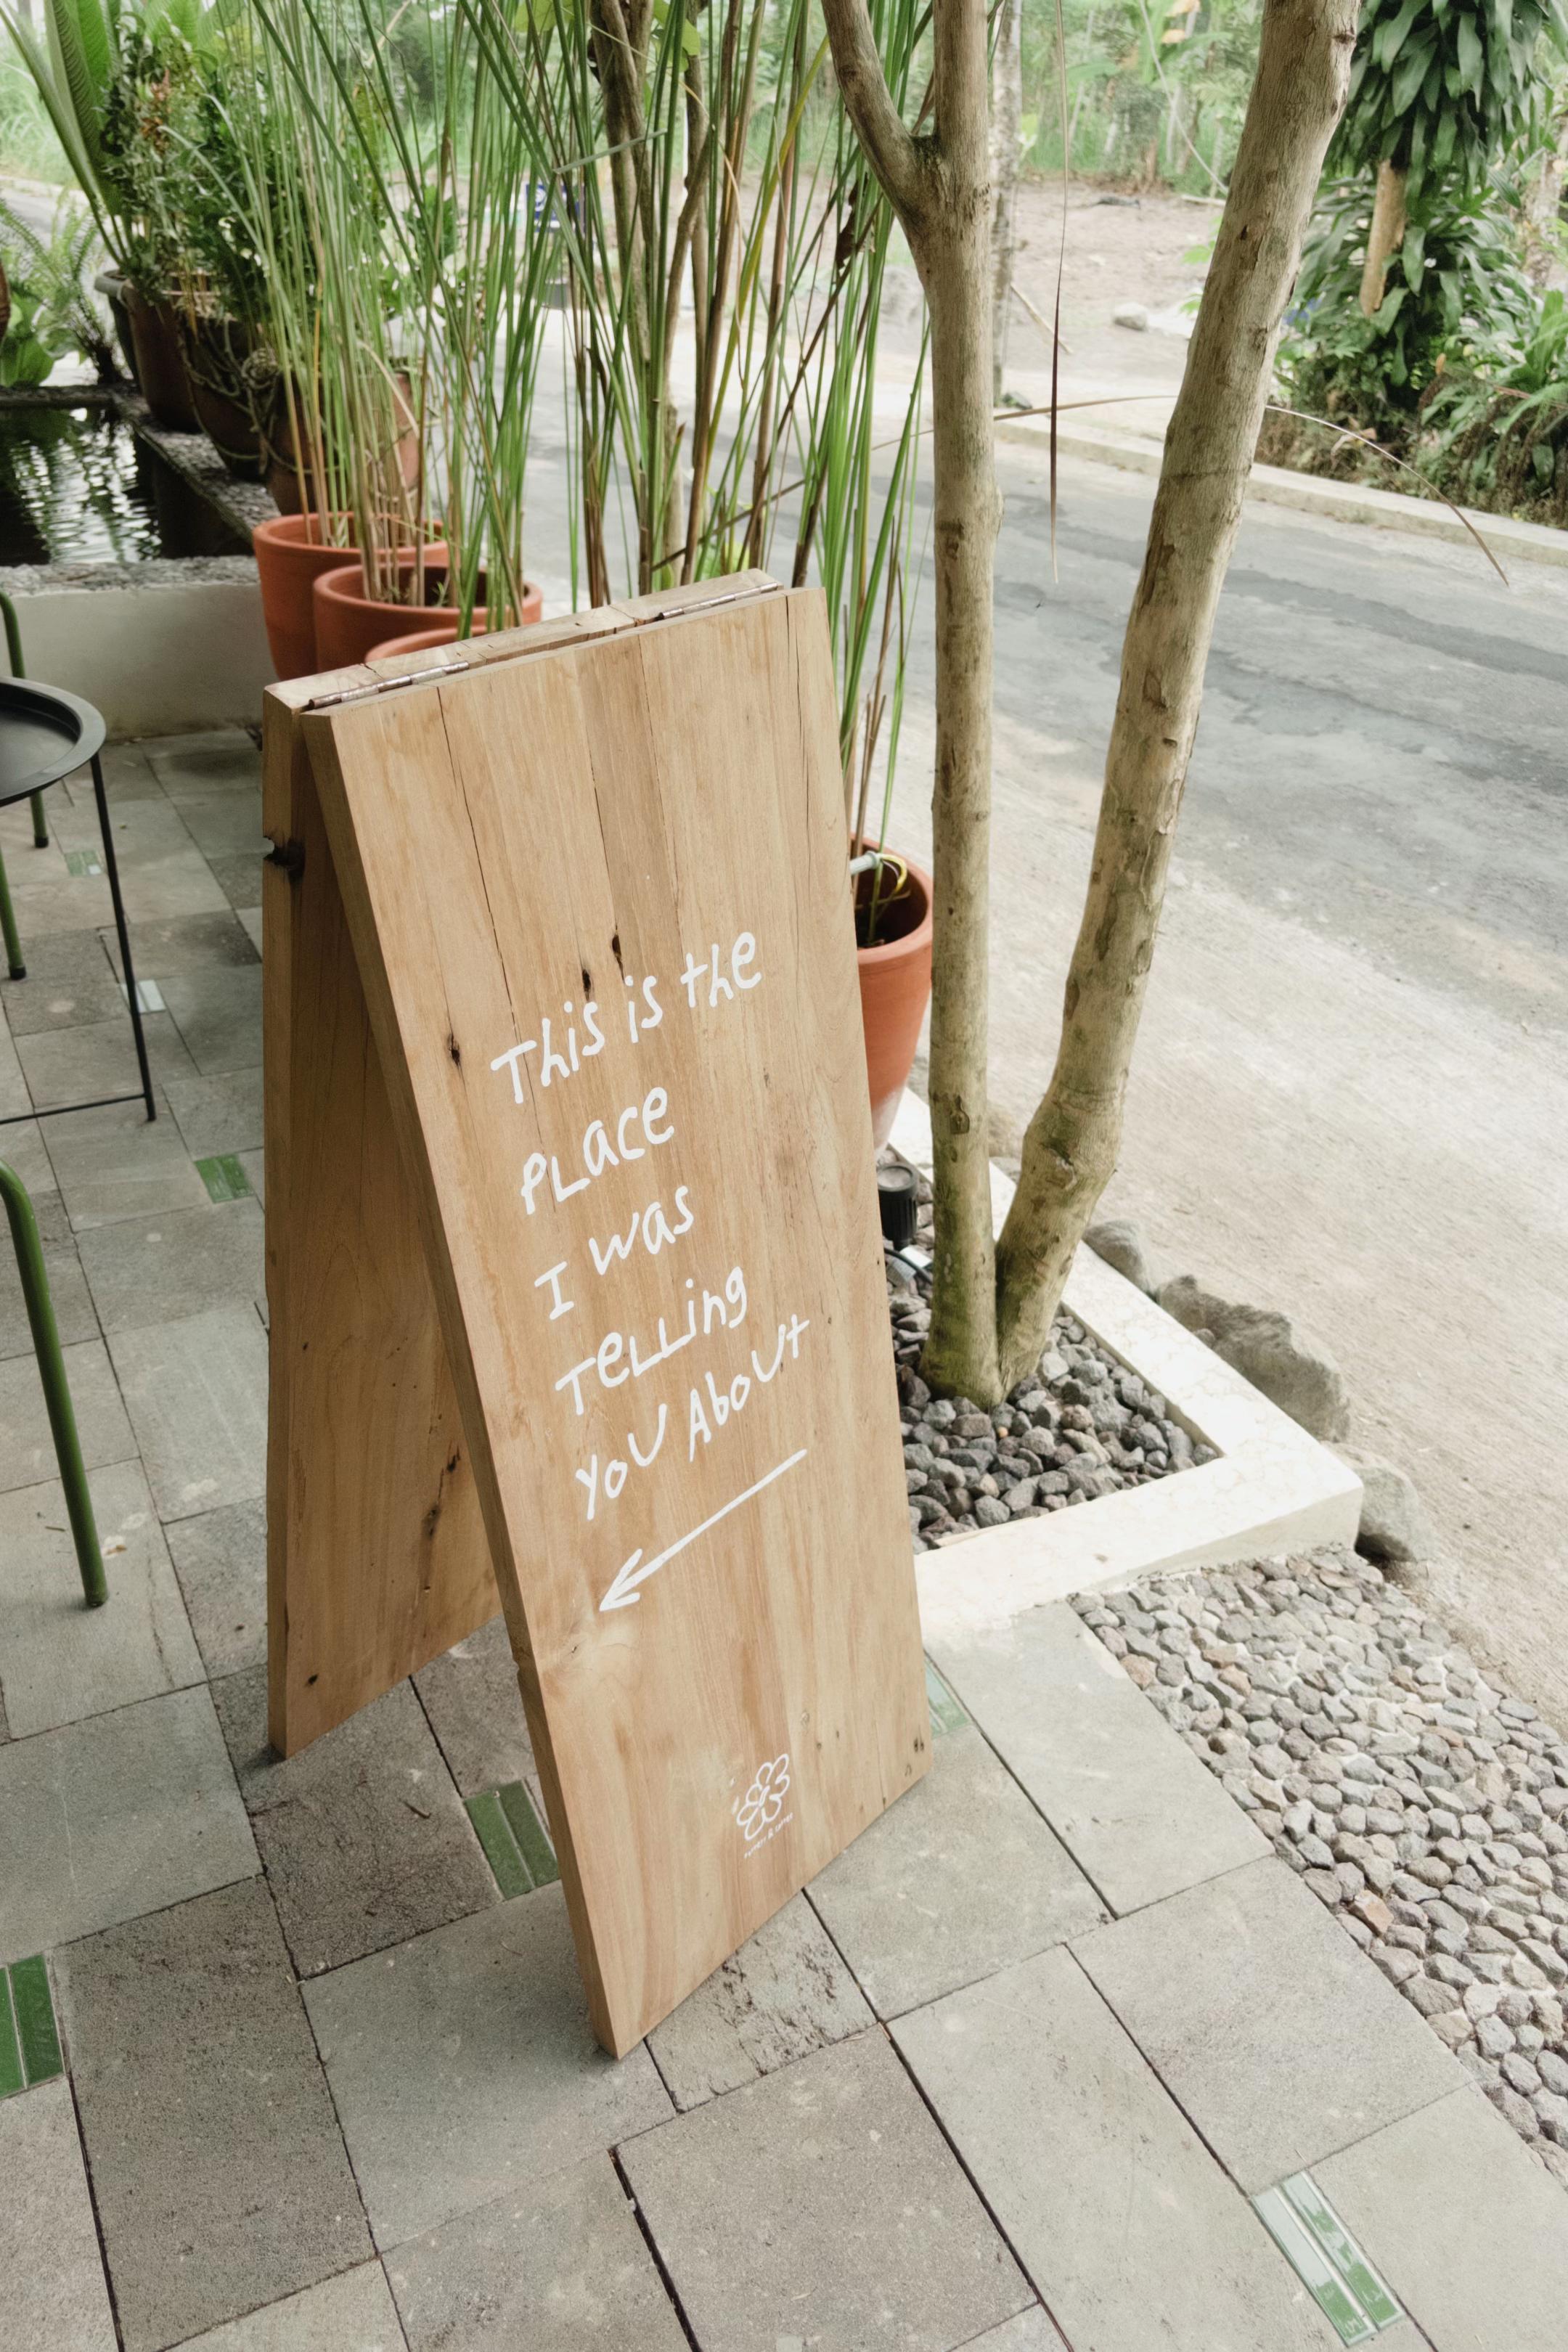 This is the
PLace
I was
TeLLing
YoU AboUt